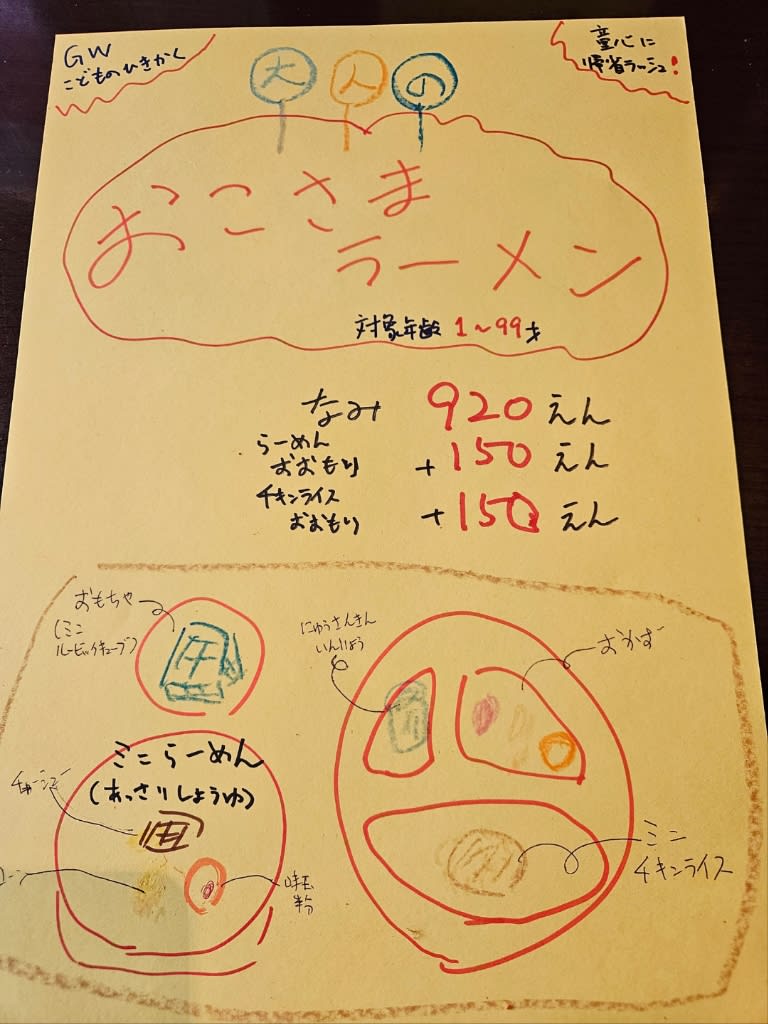 GW
こどものひきかく
童心に
帰省ラッシュ!
大人の
おこさま
ラーメン
対象年齢 1～99才
なみ 920えん
らーめん
おおもり +150えん
チキンライス
おおもり +150えん
おもちゃ
(ミニ
ルービックキューブ)
にゅうさんきん
いんりょう
おかず
ミニらーめん
(あっさりしょうゆ)
チャーシュー
コーン
味玉
半分
ミニ
チキンライス